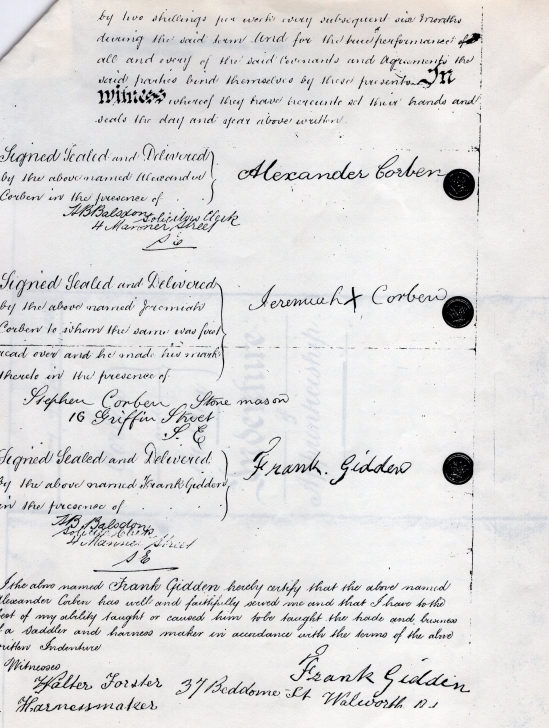 by two shillings per week every subsequent six months
during the said term And for the true performance of
all and every of the said Covenants and Agreements the
said parties bind themselves by these presents In
witness whereof they have hereunto set their hands and
seals the day and year above written.
Signed Sealed and Delivered
by the above named Alexander
Corben in the presence of
Alexander Corben
H B Balsdon
Solicitors Clerk
4 Mariner Street
S E
Signed Sealed and Delivered
by the above named Jeremiah
Corben to whom the same was first
read over and he made his mark
thereto in the presence of
Jeremiah X Corben
Stephen Corben Stone mason
16 Griffin Street
S. E
Signed Sealed and Delivered
by the above named Frank Gidden
in the presence of
Frank. Gidden
H B Balsdon
4 Mariner Street
S E
I the above named Frank Gidden hereby certify that the above named
Alexander Corben has well and faithfully served me and that I have to the
best of my ability taught or caused him to be taught the trade and business
of a saddler and harness maker in accordance with the terms of the above
written Indenture
Witnesses
Frank Gidden
Walter Forster 37 Beddome St Walworth
Harnessmaker